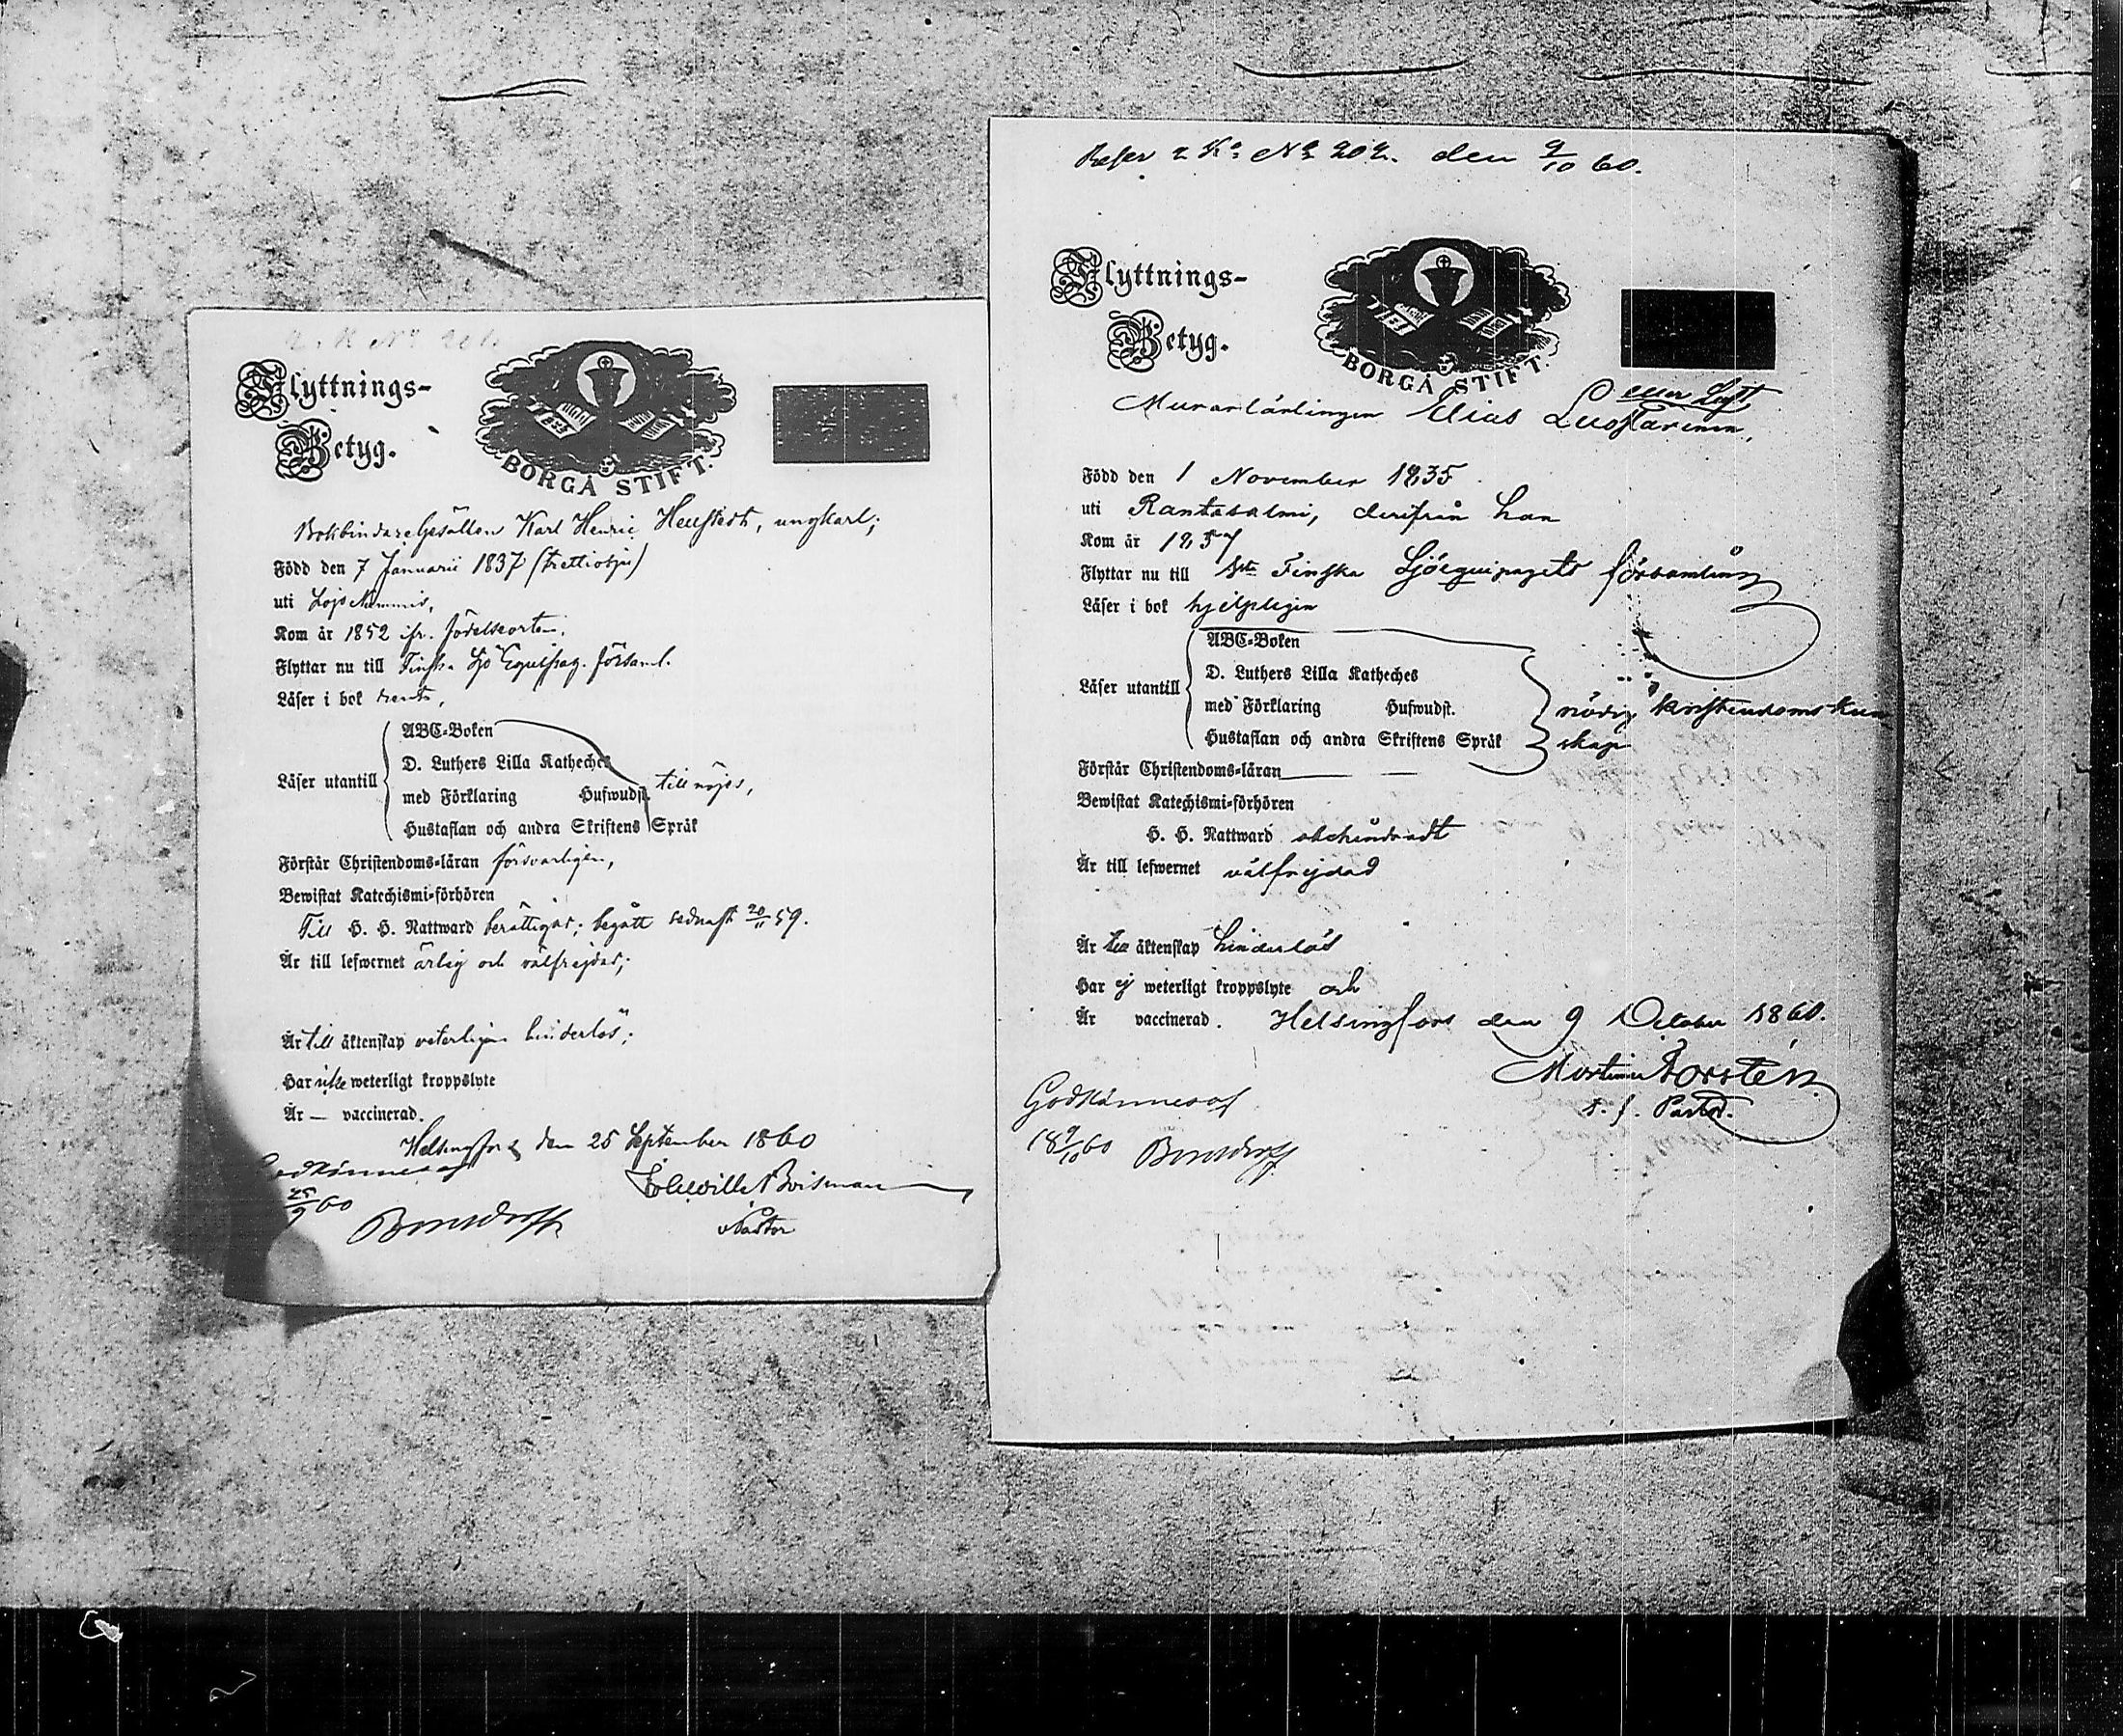 Flyttnings-
Betyg.
BORGÅ STIFT.
Bokbindaregesällen Karl Henric ungkarl;
Född den 7 Januarii 1837 (trettiosju)
uti Lojo
Kom år 1852 ifr. födelseorten.
Flyttar nu till Finska Sjö Equipag. församl.
Läser i bok rent,
ABC-Boken
D. Luthers Lilla Katheches
Läser utantill
med Förklaring Hufwudst. till nöjes,
Hustaflan och andra Skriftens Språk
Förstår Christendoms-läran försvarligen,
Bewistat Katechismi-förhören
Till H. H. Nattward berättigad; begått sednast 20/11 59.
Är till lefwernet ärlig och välfrejdad;
Är till äktenskap veterligen hinderlös;
Har icke weterligt kroppslyte
Är — vaccinerad.
Helsingfors den 25 September 1860
Godkännes af
25/9 60
Bonsdorff
Pastor
den 9/10 60.
Flyttnings-
Betyg.
BORGÅ STIFT.
eller Luft
Murarlärlingen Elias
Född den 1 November 1835
uti Rantasalmi, derifrån han
Kom år 1857
Flyttar nu till Finska Sjöequipagets församling
Läser i bok hjelpligen
ABC-Boken
D. Luthers Lilla Katheches
Läser utantill
med Förklaring Hufwudst. nödig kristendomskun
Hustaflan och andra Skriftens Språk skap
Förstår Christendoms-läran
Bewistat Katechismi-förhören
H. H. Nattward obehindradt
Är till lefwernet välfrejdad
Är till äktenskap hinderlös
Har ej weterligt kroppslyte och
Är vaccinerad. Helsingfors den 9 October 1860.
t. f. Pastor.
Godkännes af
18 9/10 60 Bonsdorff